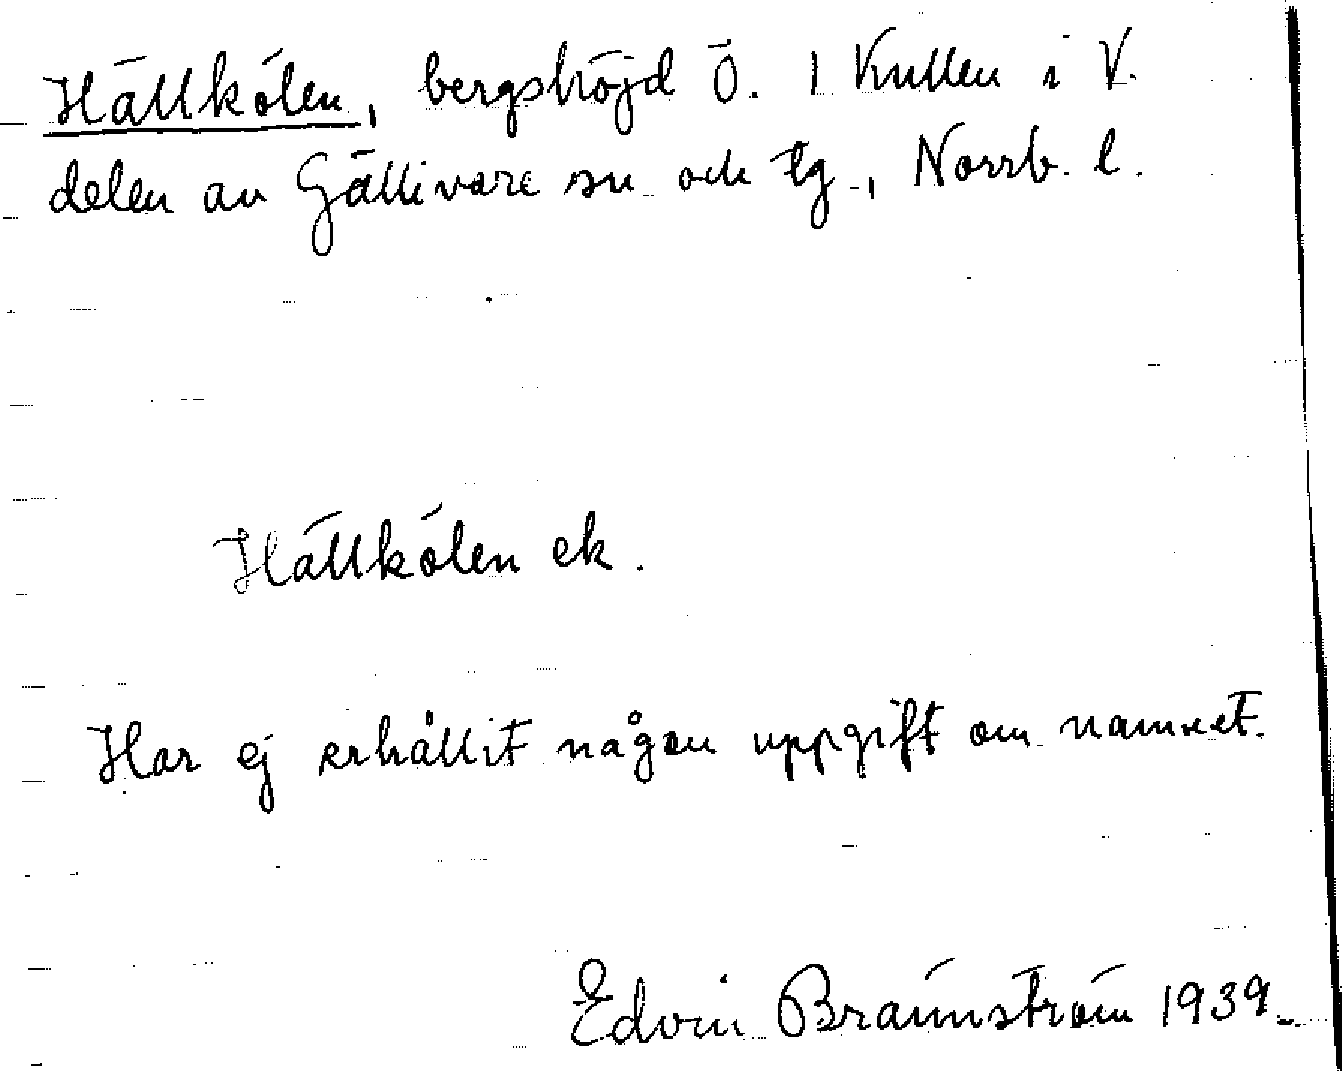 Hällkölen, bergshöjd Ö. 1 Kullen i V.
delen av Gällivare sn och tg., Norrb. l.
Hällkölen ek.
Har ej erhållit någon uppgift om namnet.
Edvin Brännström 1939.